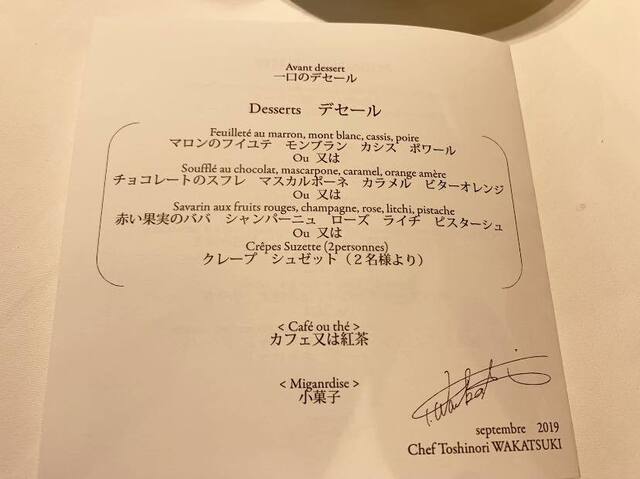 Avant dessert
一口のデセール
Desserts　デセール
Feuilleté au marron, mont blanc, cassis, poire
マロンのフイユテ　モンブラン　カシス　ポワール
Ou 又は
Soufflé au chocolat, mascarpone, caramel, orange amère
チョコレートのスフレ　マスカルポーネ　カラメル　ビターオレンジ
Ou 又は
Savarin aux fruits rouges, champagne, rose, litchi, pistache
赤い果実のババ　シャンパーニュ　ローズ　ライチ　ピスターシュ
Ou 又は
Crêpes Suzette (2personnes)
クレープ　シュゼット（２名様より）
< Café ou thé >
カフェ又は紅茶
< Miganrdise >
小菓子
septembre 2019
Chef Toshinori WAKATSUKI